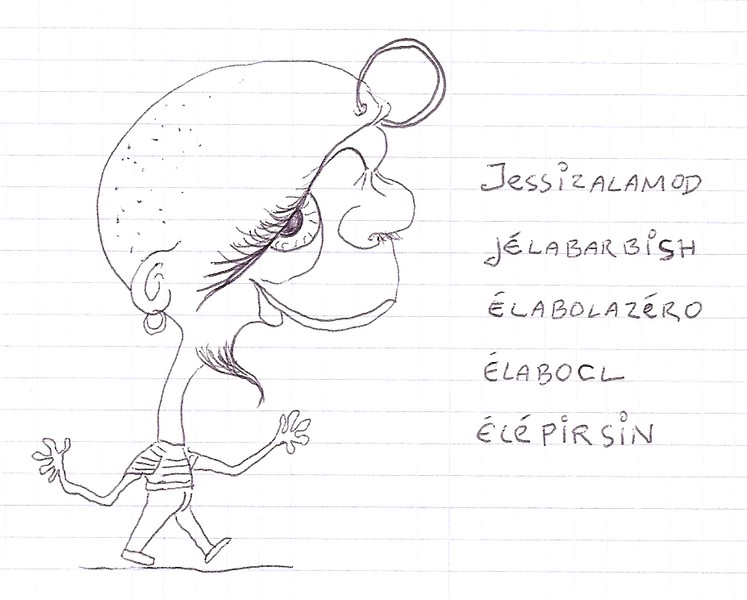 Jessizalamod
jélabarbish
élabolazéro
élabocl
élépirsin